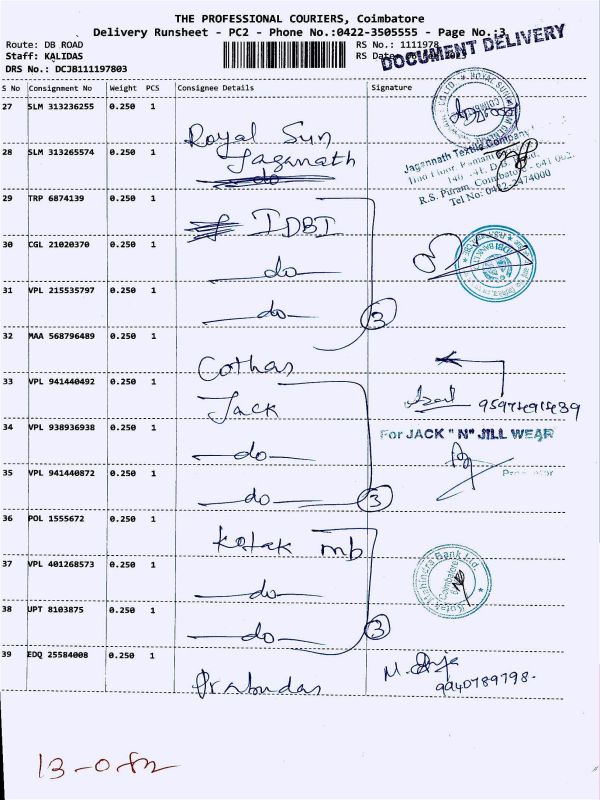 THE PROFESSIONAL COURIERS, Coimbatore
Delivery Runsheet - PC2 - Phone No.:0422-3505555 - Page No.:3
DOCUMENT DELIVERY
Route: DB ROAD
RS No.: 1111978
Staff: KALIDAS
RS Date:
DRS No.: DCJB111197803
S No Consignment No Weight PCS Consignee Details Signature
27 SLM 313236255 0.250 1 Royal Sun
28 SLM 313265574 0.250 1 Jaganath
Jagannath Textile Company
R.S. Puram, Coimbatore - 641 002.
Tel No: 0422-2474000
29 TRP 6874139 0.250 1 IDBI
30 CGL 21020370 0.250 1 do
31 VPL 215535797 0.250 1 do
3
32 MAA 568796489 0.250 1 Cothas
33 VPL 941440492 0.250 1 Jack
34 VPL 938936938 0.250 1 do
For JACK "N" JILL WEAR
35 VPL 941440872 0.250 1 do
3
36 POL 1555672 0.250 1 Kotak mb
37 VPL 401268573 0.250 1 do
Kotak Mahindra Bank Ltd.
Coimbatore
38 UPT 8103875 0.250 1 do
3
39 EDQ 25584008 0.250 1 Prabudas
9940789798